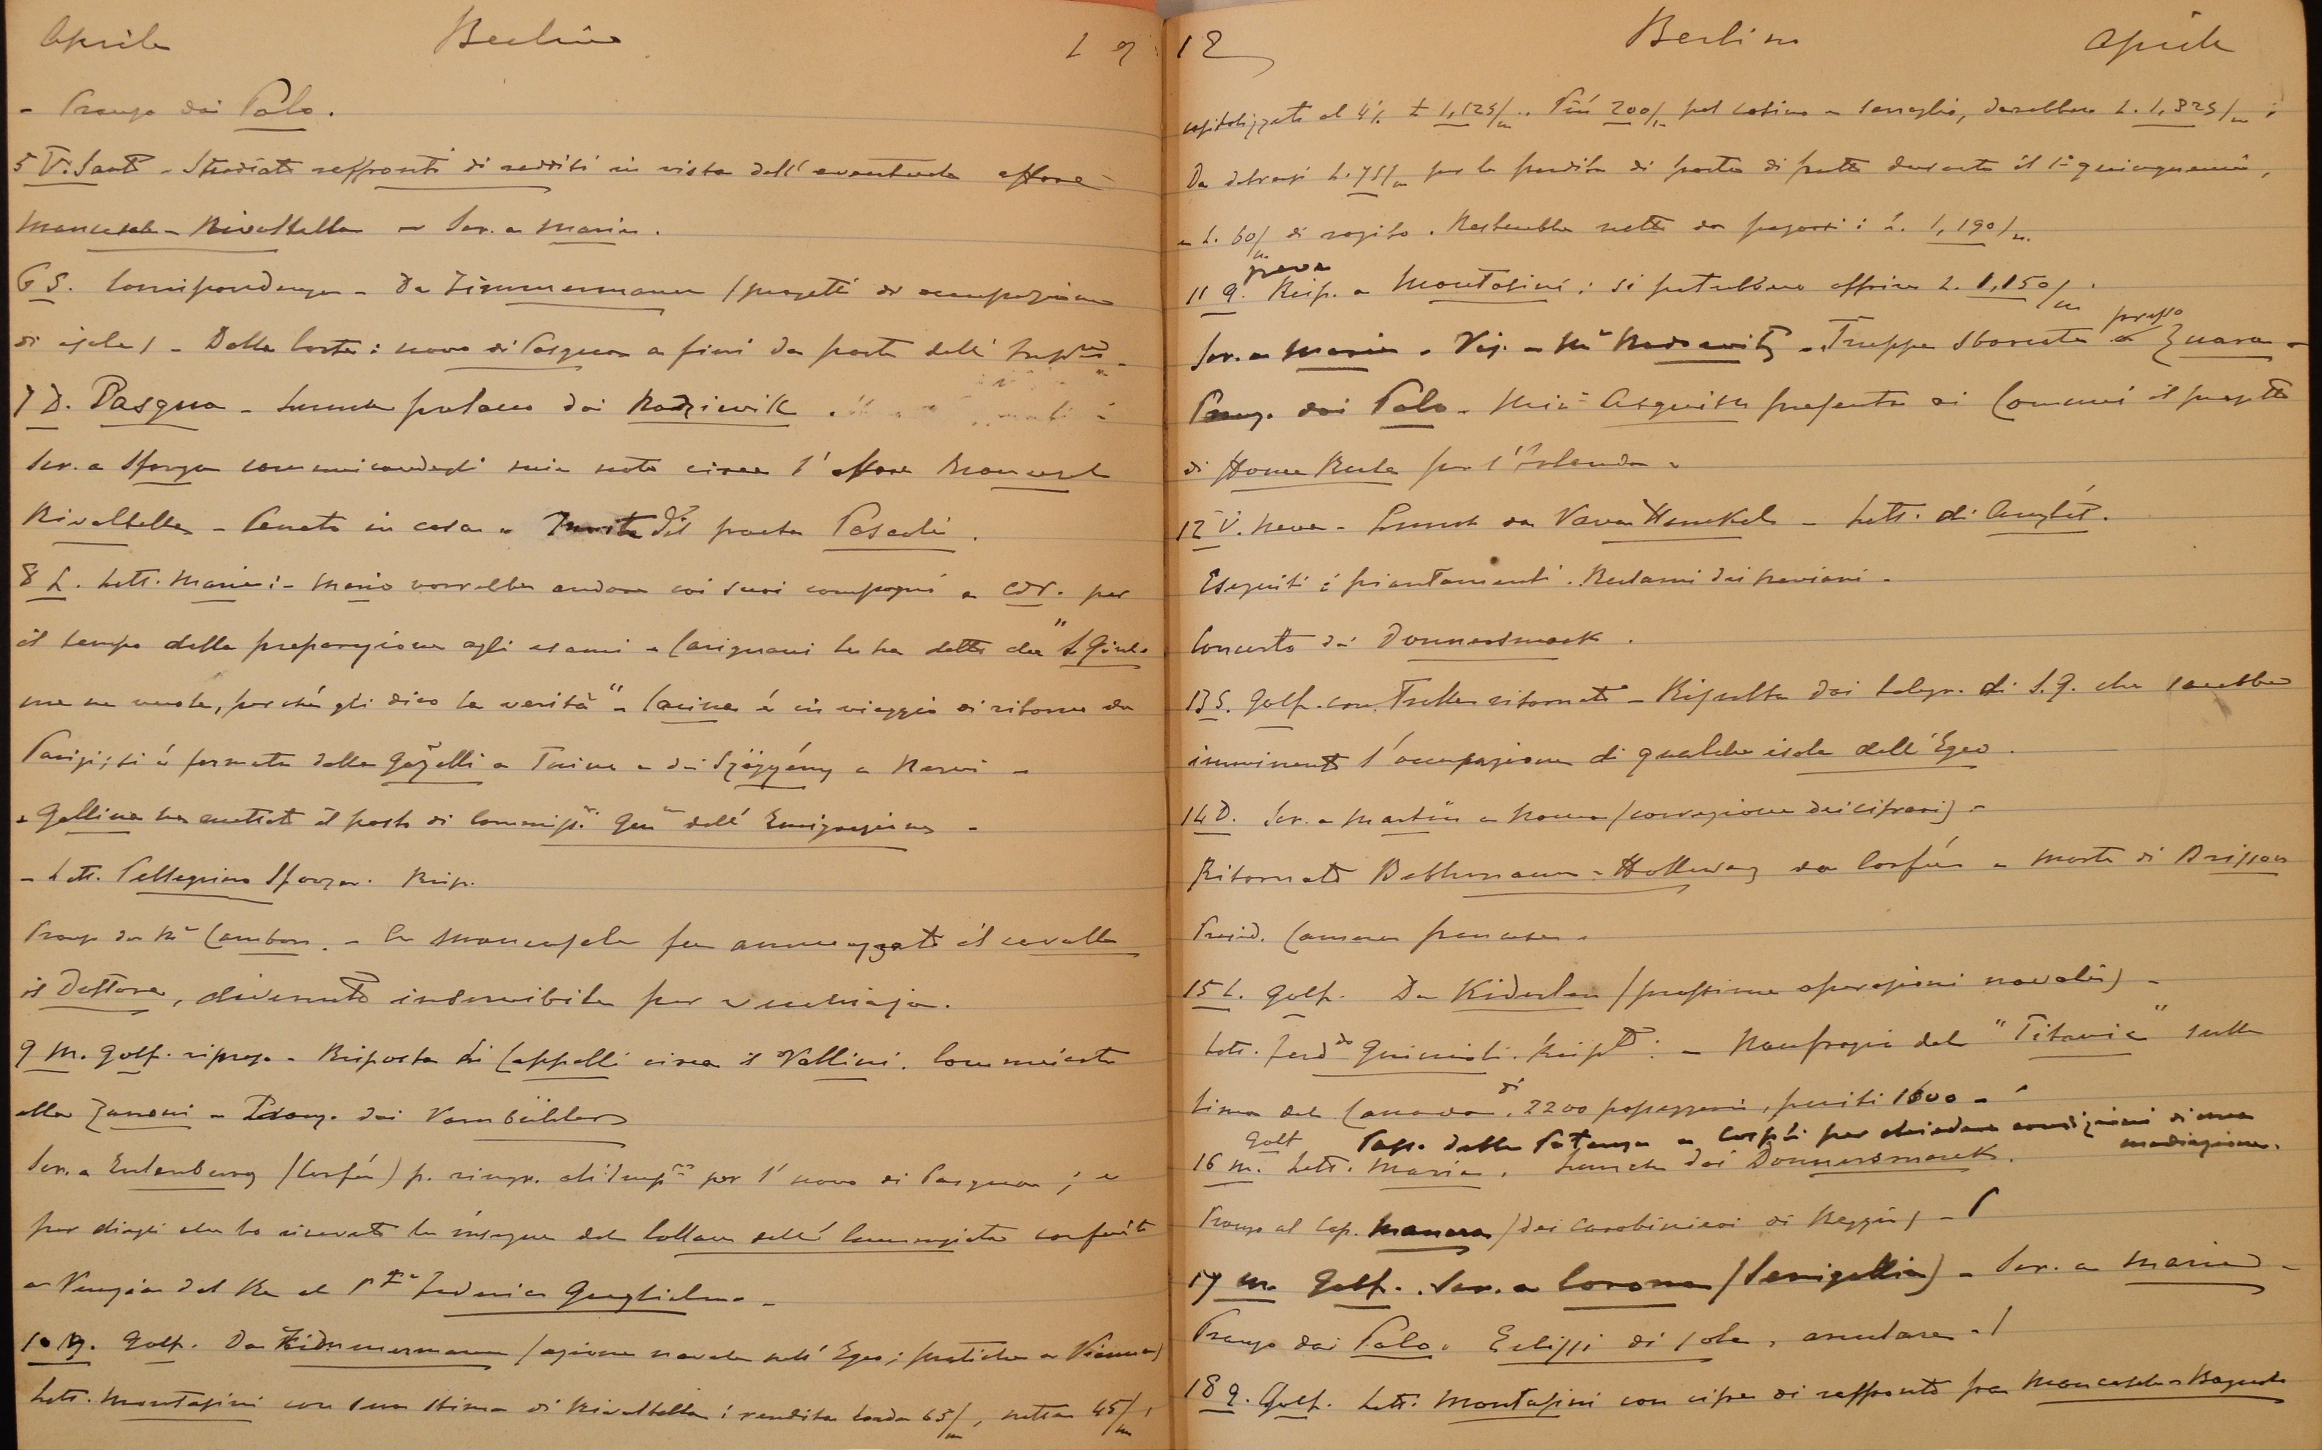 Aprile Berlino 19
- Pranzo dai Polo.
5 V. Santo - Studiati raffronti di redditi in vista dell'eventuale affare
Mancasale - Rivaltella - Scr. a Maria.
6 S. Corrispondenza - Da Zimmermann (progetti di occupazione
di isole) - Dalla Corte: uovo di Pasqua a fiori da parte dell'Imp
7 D. Pasqua - dai Radziwill.
Scr. a Sforza comunicandogli mia nota circa l'affare Mancasale
Rivaltella - Pranzato in casa - Morte del poeta Pascoli.
8 L. Lett. Maria: - Mario vorrebbe andare coi suoi compagni a CdV. per
il tempo della preparazione agli esami - Carignani le ha detto che "S. Giul.
me ne vuole, perché gli dico la verità" - è in viaggio di ritorno da
Parigi; si è fermata dalla Gozelli a Torino e dai Szögyény a Nervi -
- Gallina ha accettato il posto di Commiss. Gen. dell'Emigrazione -
- Lett. Pellegrino Sforza. Risp.
Pranzo da Mr Cambon. - A Mancasale fu ammazzato il cavallo
il Dottore, divenuto inservibile per vecchiaja.
9 M. Golf. ripreso - Risposta di Cappelli circa il Vallini. Comunicata
alla Zanoni - Pranz. dai Varnbühler
Scr. a Eulenburg (Corfù) p. ringr. all'Imp.re per l'uovo di Pasqua; e
per dirgli che ho ricevuto le insegne del Collare dell'Annunziata conferito
a Venezia dal Re al P.pe Federico Guglielmo -
10 M. Golf. Da Zimmermann (azione navale nell'Egeo; pratiche a Vienna)
Lett. Montasini con sua stima di Rivaltella: rendita lorda 65/m, netta 45/m,
12 Berlino Aprile
capitalizzata al 4%. L 1,125/m. Più 200/m pel casino e serraglio, darebbero L. 1,325/m;
Da detrarsi L. 75/m per la perdita di parte di frutto durante il 1° quinquennio,
e L. 60/m di rogito. Resterebbe netto da pagarsi: L. 1,190/m.
11 G. neve Risp. a Montasini: si potrebbero offrire L. 1,150/m.
Scr. a Maria - Vis. a Me - Truppe sbarcate presso Zuara -
Pranz. dai Polo - Min.o Asquith presenta ai Comuni il progetto
di Home Rule per l'Irlanda -
12 V. Neve - Lunch da Vava Henckel - Lett. di Anglét.
Eseguiti i piantamenti. Reclami dei
Concerto dai Donnersmarck.
13 S. Golf. con Faller ritornato - Risulta dai telegr. di S. G. che sarebbe
imminente l'occupazione di qualche isola dell'Egeo.
14 D. Scr. a Martin a Roma (correzione dei cifrari) -
Ritornato Bethmann-Hollweg da Corfù - Morto di Brisson
Presid. Camera francese -
15 L. Golf. Da Kiderlen (prossime operazioni navali) -
Lett. Ferd.do Guiccioli. Risp.to: - Naufragio del "Titanic" sulle
linea del Canada. di 2200 passeggeri, periti 1600 -
Golf Pass. delle Potenze a Costpli per chiedere condizioni di una
mediazione.
16 M. Lett. Maria. Lunch dai Donnersmarck.
Pranzo al Cap. Manera (dei Carabinieri di Reggio) -
17 M. Golf. Scr. a Corona (Senigallia) - Scr. a Maria -
Pranzo dai Polo. Eclissi di sole, anulare -
18 G. Golf. Lett. Montasini con cifre di raffronto fra Mancasale-Bagnolo